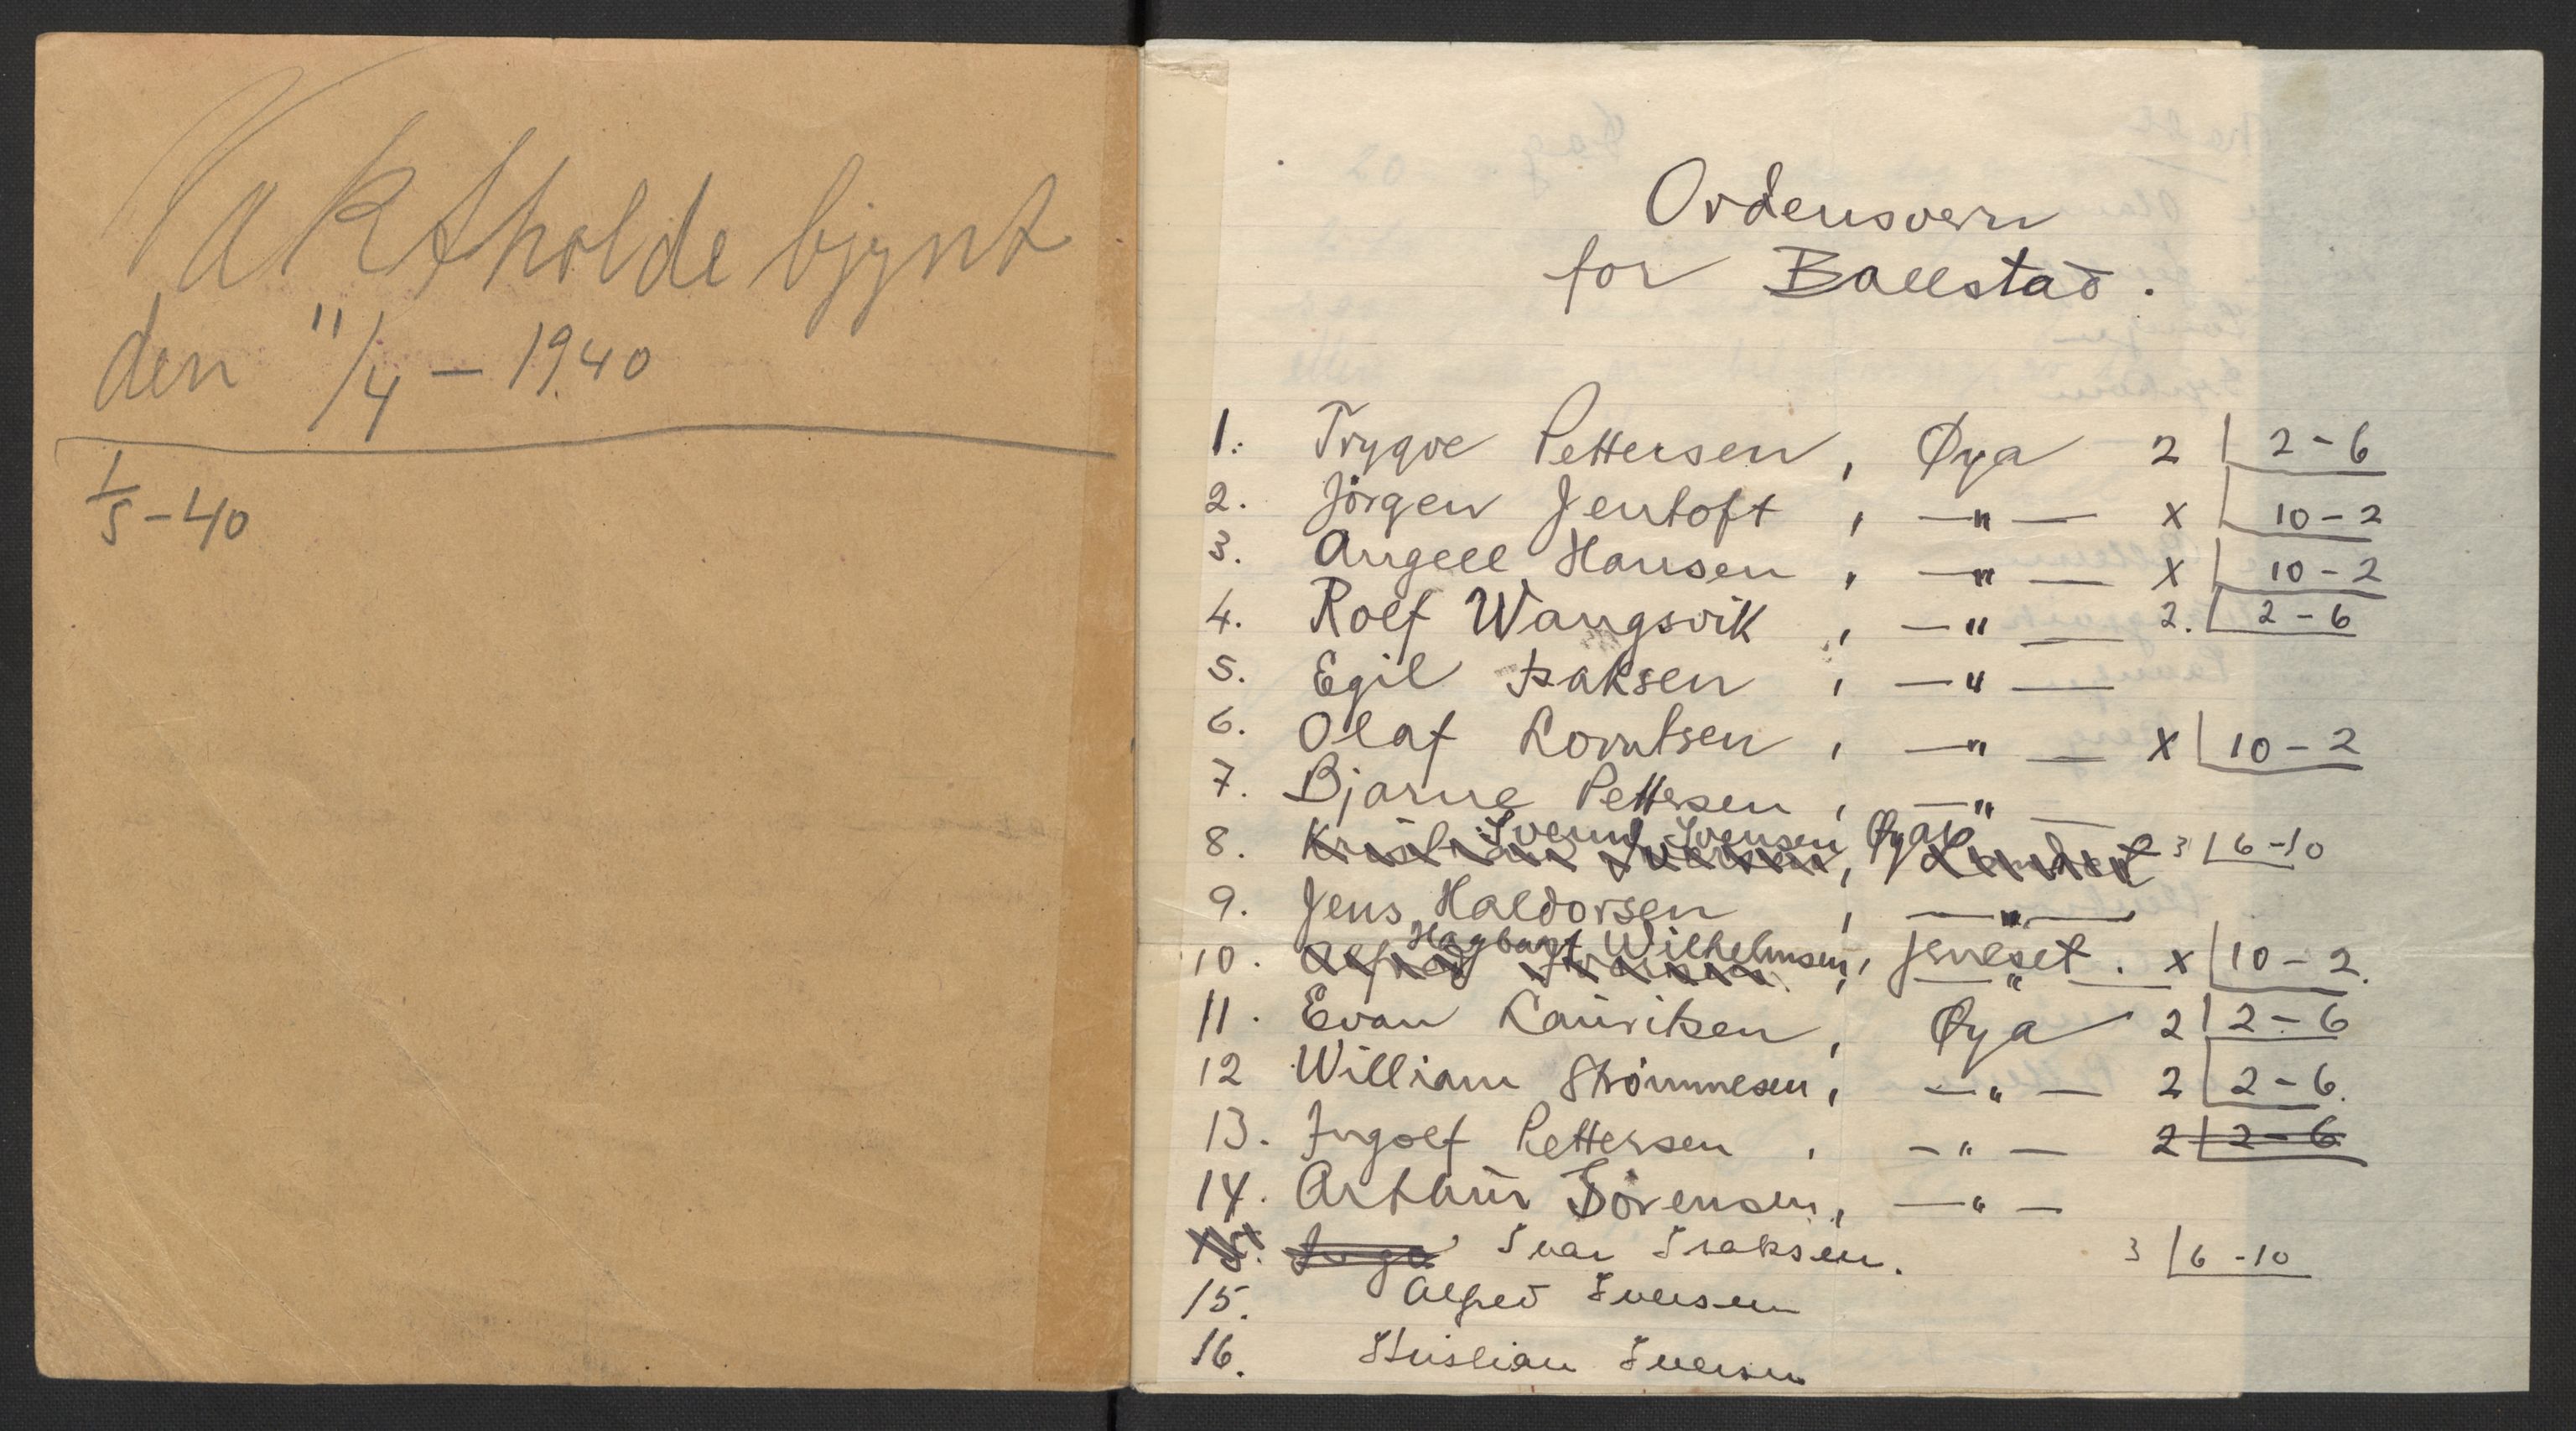 Vaktholde bjynt
den 11/4 - 1940
1/5 - 40
Ordensvern
for Ballstad.
1. Trygve Pettersen, Øya 2 | 2 - 6
2. Jörgen Jentoft, —"— x | 10 - 2
3. Angell Hansen, —"— x | 10 - 2
4. Rolf Wangsvik, —"— 2. | 2 - 6
5. Egil Isaksen, —"—
6. Olaf Lorntsen, —"— x | 10 - 2
7. Bjarne Pettersen, —"—
Svennd Svensen Øya
8. Kristian Iversen, Lendset 3 | 6 - 10
9. Jens Haldorsen, —"—
Hagbart Wilhelmsen, Jenset.
10. Alfred Iversen, —"— x | 10 - 2.
11. Evan Lauritzen, Øya 2 | 2 - 6
12 William Strömmesen, —"— 2 | 2 - 6.
13. Ingolf Pettersen, —"— 2 | 2 - 6
14. Arthur Sörensen, —"—
15. Inga Ivar Isaksen. 3 | 6 - 10
15. Alfred Iversen
16. Kristian Iversen